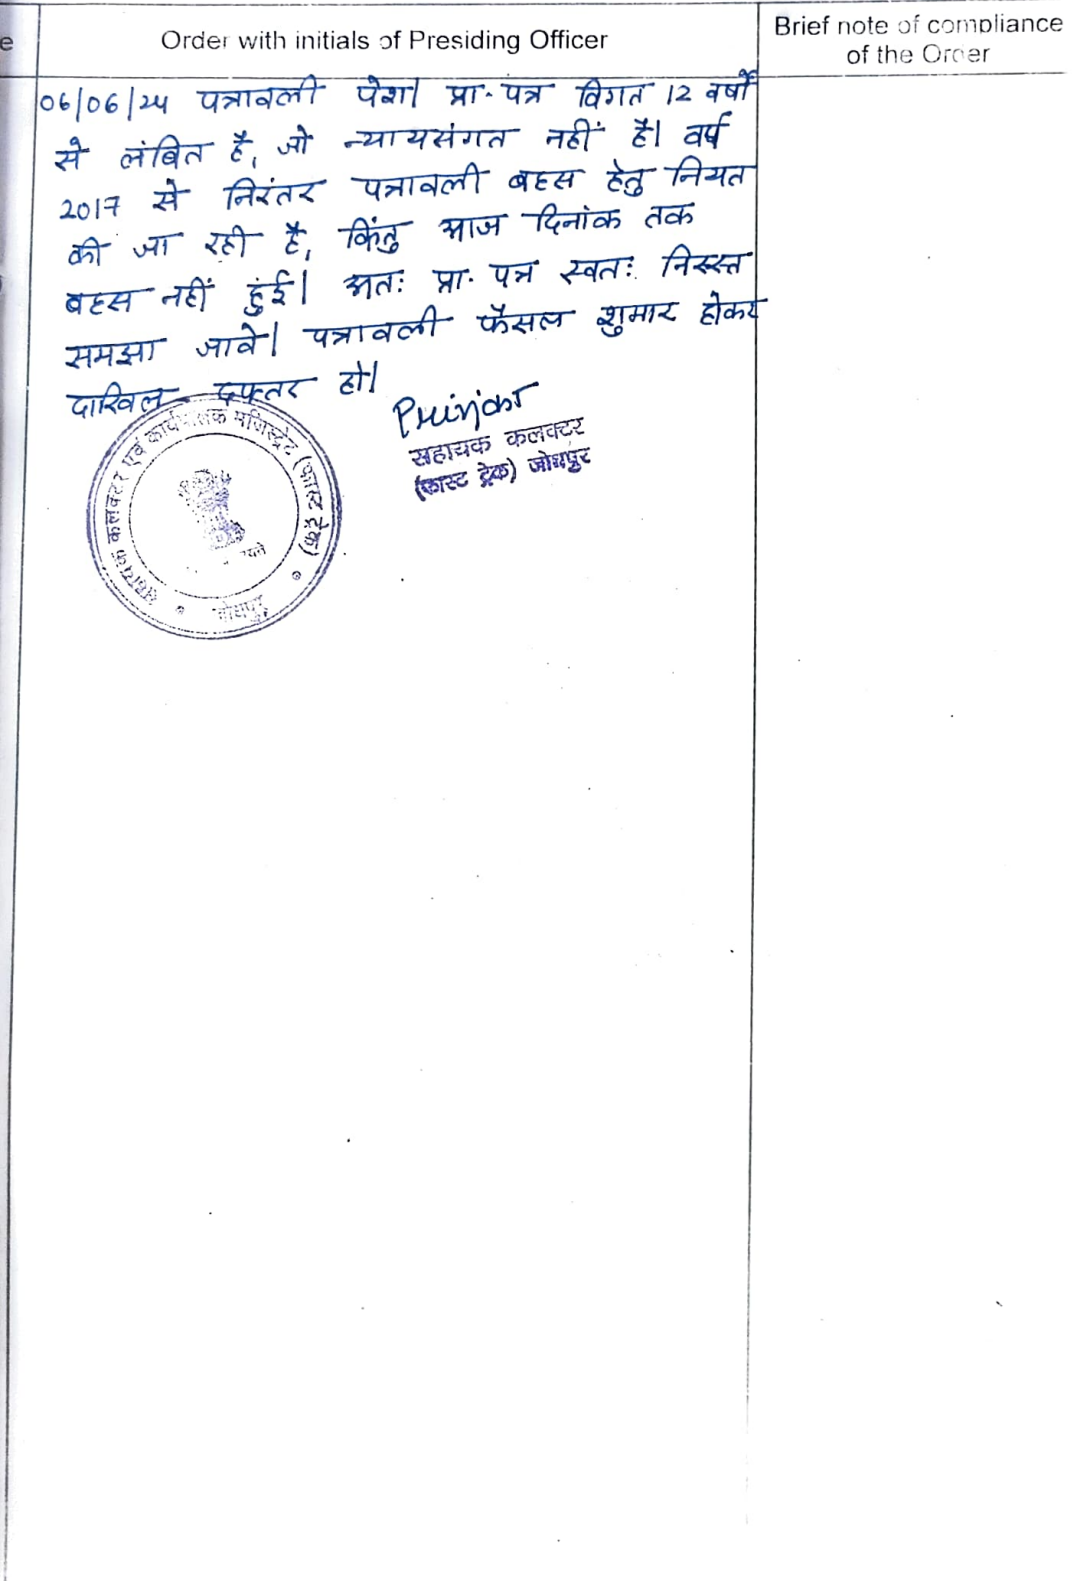 e
Order with initials of Presiding Officer
Brief note of compliance
of the Order
06/06/24 पत्रावली पेश। प्रा. पत्र विगत 12 वर्षों
से लंबित है, जो न्यायसंगत नहीं है। वर्ष
2017 से निरंतर पत्रावली बहस हेतु नियत
की जा रही है, किंतु आज दिनांक तक
बहस नहीं हुई। अतः प्रा. पत्र स्वतः निरस्त
समझा जावे। पत्रावली फैसल शुमार होकर
दाखिल दफ्तर हो।
सहायक कलक्टर
(फास्ट ट्रेक) जोधपुर
सहायक कलक्टर एवं कार्यपालक मजिस्ट्रेट (फास्ट ट्रेक)
जोधपुर